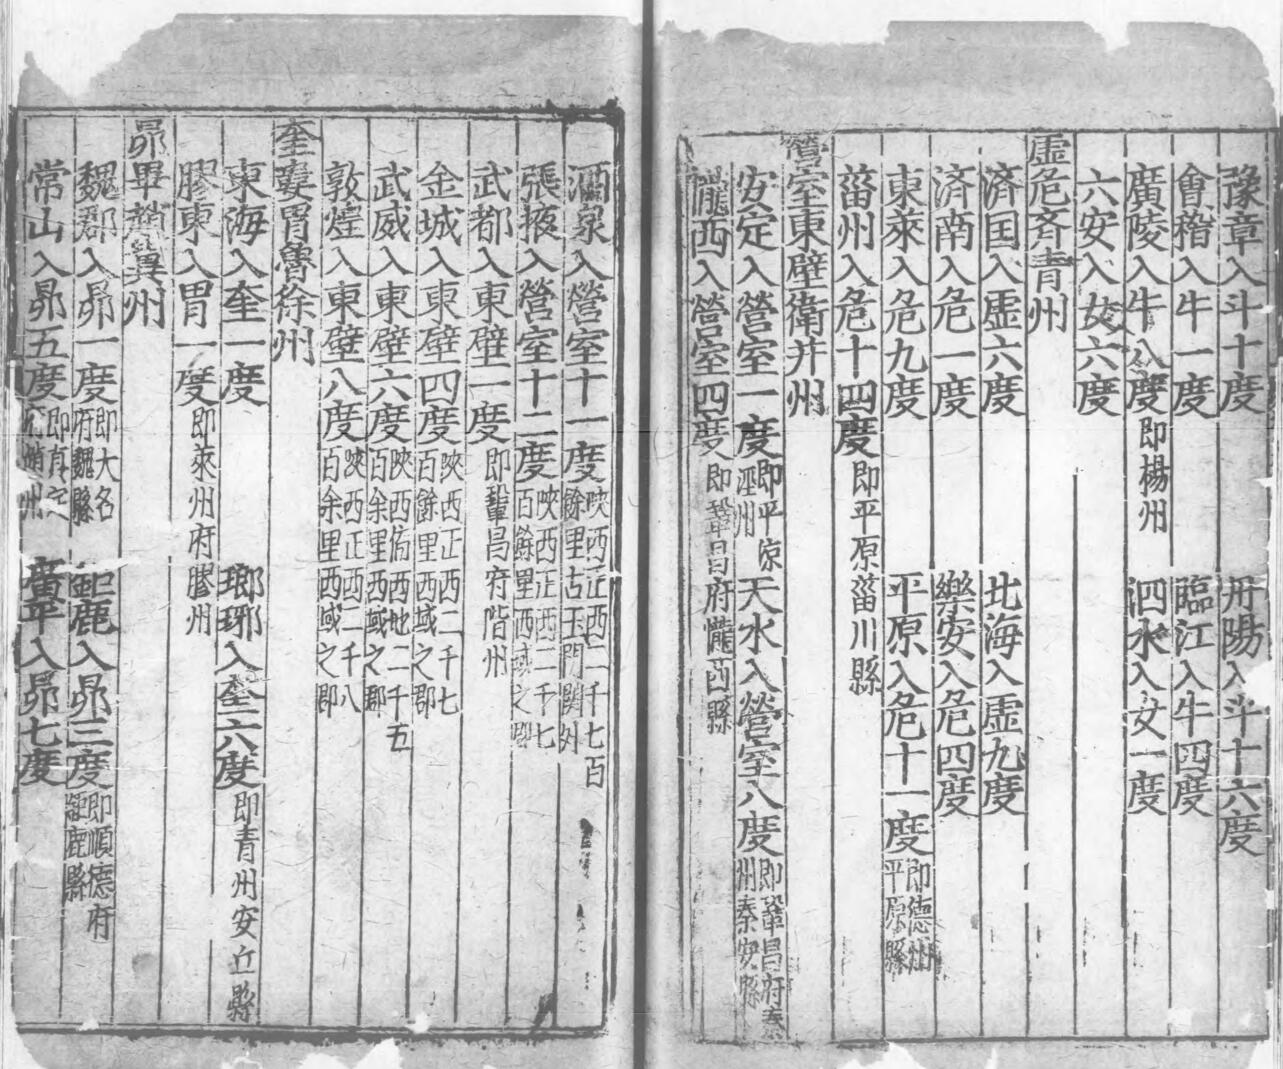 豫章入斗十度 丹陽入斗十六度
會稽入牛一度 臨江入牛四度
廣陵入牛八度即楊州 泗水入女一度
六安入女六度
虛危齊青州
済国入虛六度 北海入虛九度
済南入危一度 樂安入危四度
東萊入危九度 平原入危十一度即德州平原縣
菑州入危十四度即平原菑川縣
營室東壁衛并州
安定入營室一度即平凉涇州 天水入營室八度即鞏昌府秦州秦安縣
隴西入營室四度即鞏昌府隴西縣
酒泉入營室十一度陝西正西二千七百餘里古玉門関外
張掖入營室十二度陝西正西二千七百餘里西域之郡
武都入東壁一度即鞏昌府階州
金城入東壁四度陝西正西二千七百餘里西域之郡
武威入東壁六度陝西佑西地二千五百余里西域之郡
敦煌入東壁八度陝西正西二千八百余里西域之郡
奎婁胃魯徐州
東海入奎一度 瑯琊入奎六度即青州安丘縣
膠東入胃一度即萊州府膠州
昴畢趙兾州
魏郡入昴一度即大名府魏縣 鉅鹿入昴三度即順德府鉅鹿縣
常山入昴五度即真定 廣平入昴七度